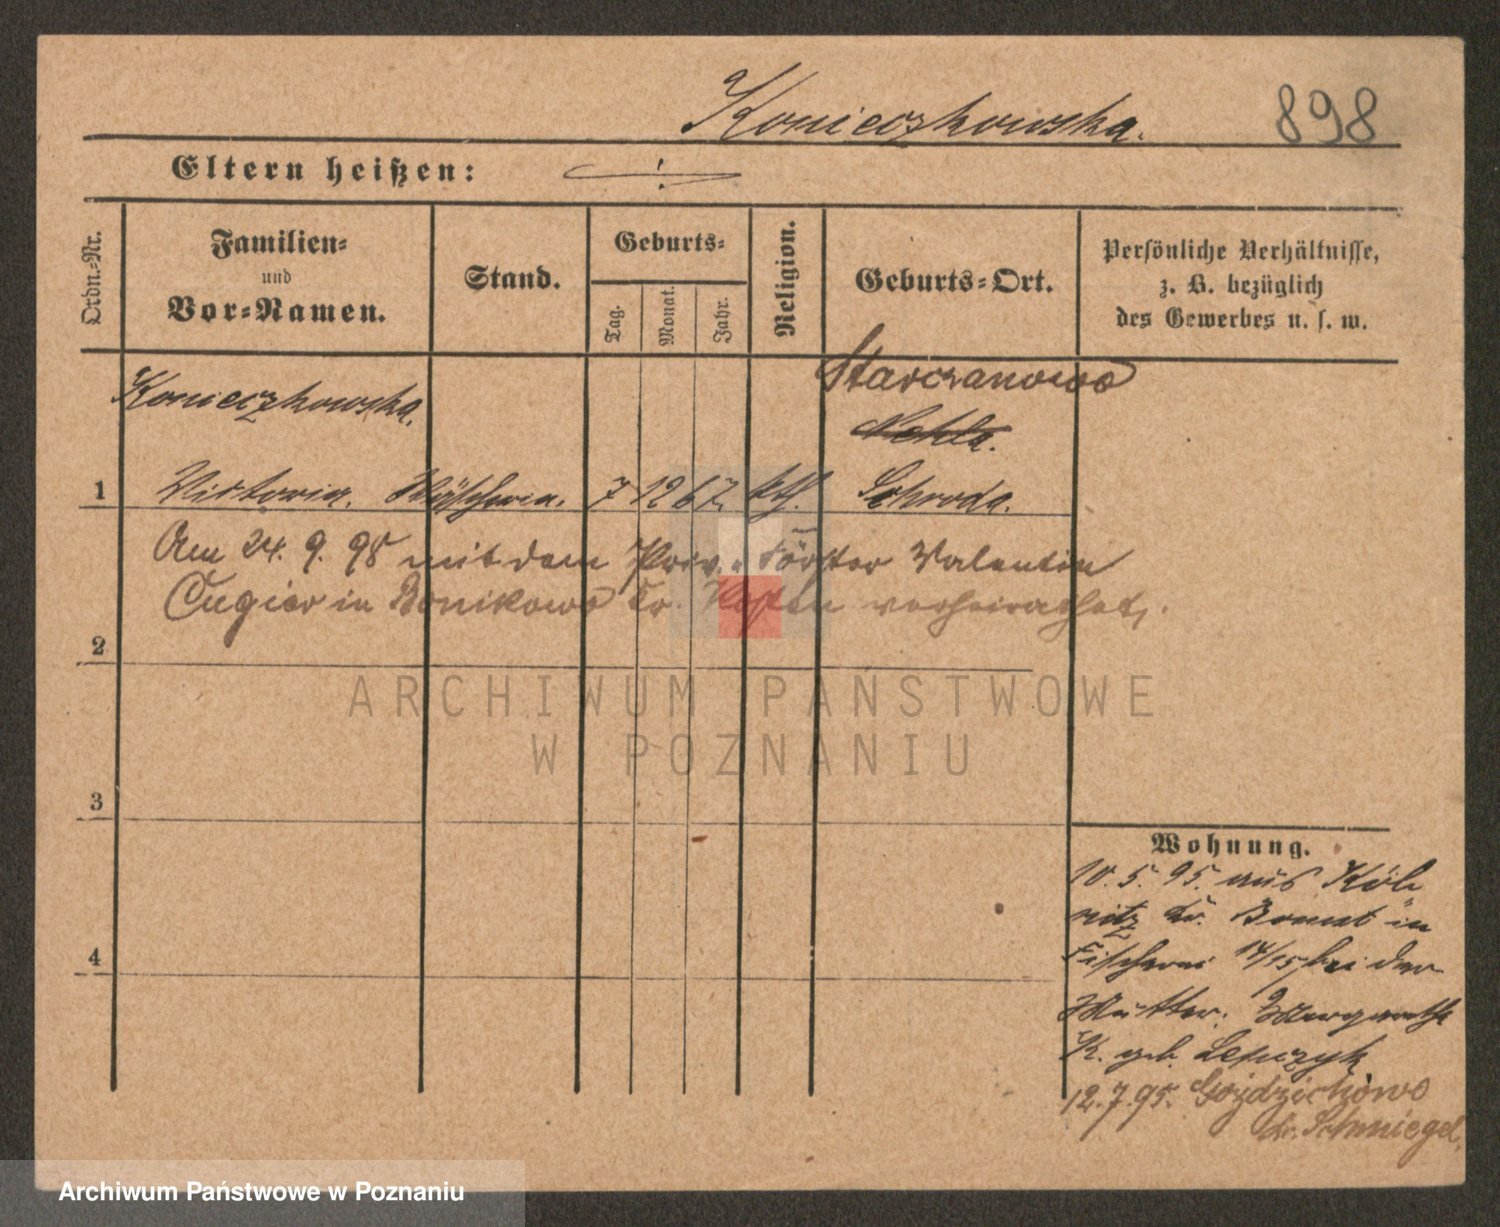 Konieczkowska.
898
Eltern heißen:
Ordn.-Nr.
Familien-
und
Vor-Namen.
Stand.
Geburts-
Tag.
Monat.
Jahr.
Religion.
Geburts-Ort.
Persönliche Verhältnisse,
z. B. bezüglich
des Gewerbes u. s. w.
Starczanowo
Konieczkowska.
Nekla.
1 Viktoria. Wäscherin. 7 12 67. kth. Schroda.
Am 24. 9. 98 mit dem Priv. Förster Valentin
Cugier in Bonikowo Kr. Kosten verheirathet.
2
ARCHIWUM PAŃSTWOWE
W POZNANIU
3
Wohnung.
10. 5. 95. aus
Kr. Bomst in
4
Fischerei 14/15 bei der
Mutter: Margarethe
K. geb.
12. 7. 95. Gozdzichowo
Kr. Schmiegel.
Archiwum Państwowe w Poznaniu